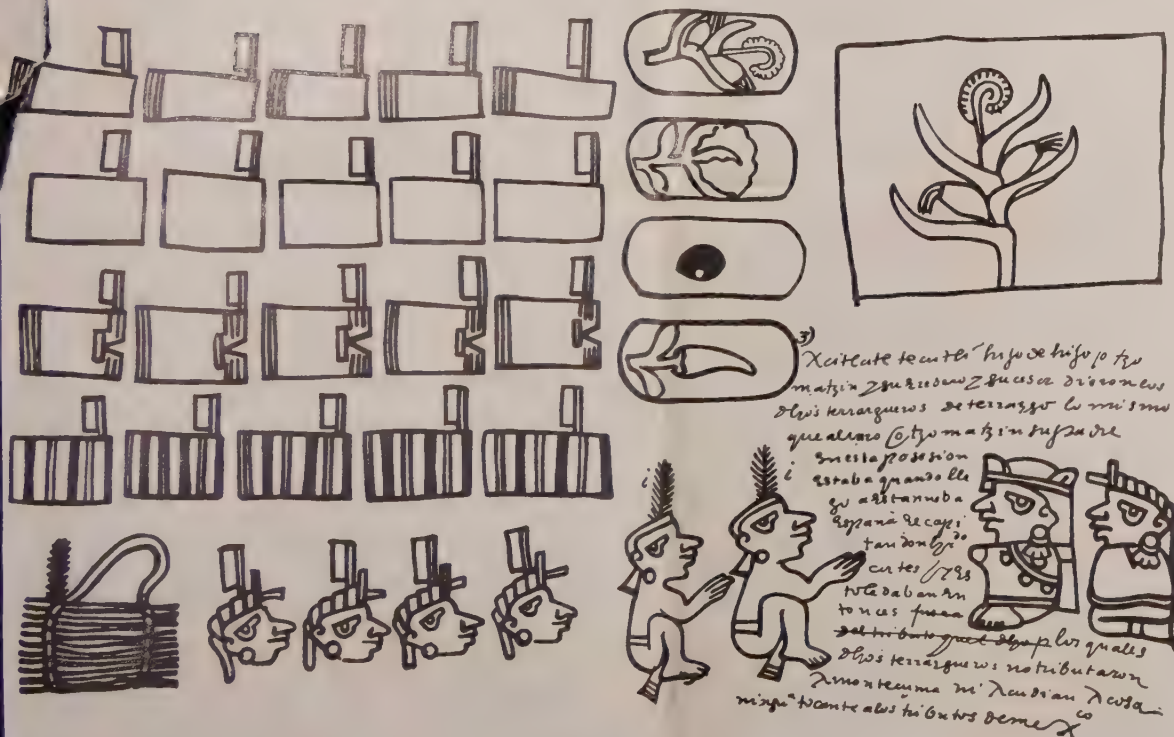 3)
Xcitecatetecutli hijo de hijo potzo
matzin y su heredero y sucesor dieronlos
dhos terrazgueros de terrazgo lo mismo
que al dho Cotzomatzin su padre
en esta posesion
estaba quando lle
go a esta nueba
españa el capi
tan don
cortes y
to le daban en
tonces fuera
del tributo que dho p los quales
dhos terrazgueros no tributaron
A montecuma ni Acudian A cosa
ningua tocante a los tributos de mexco
i
i